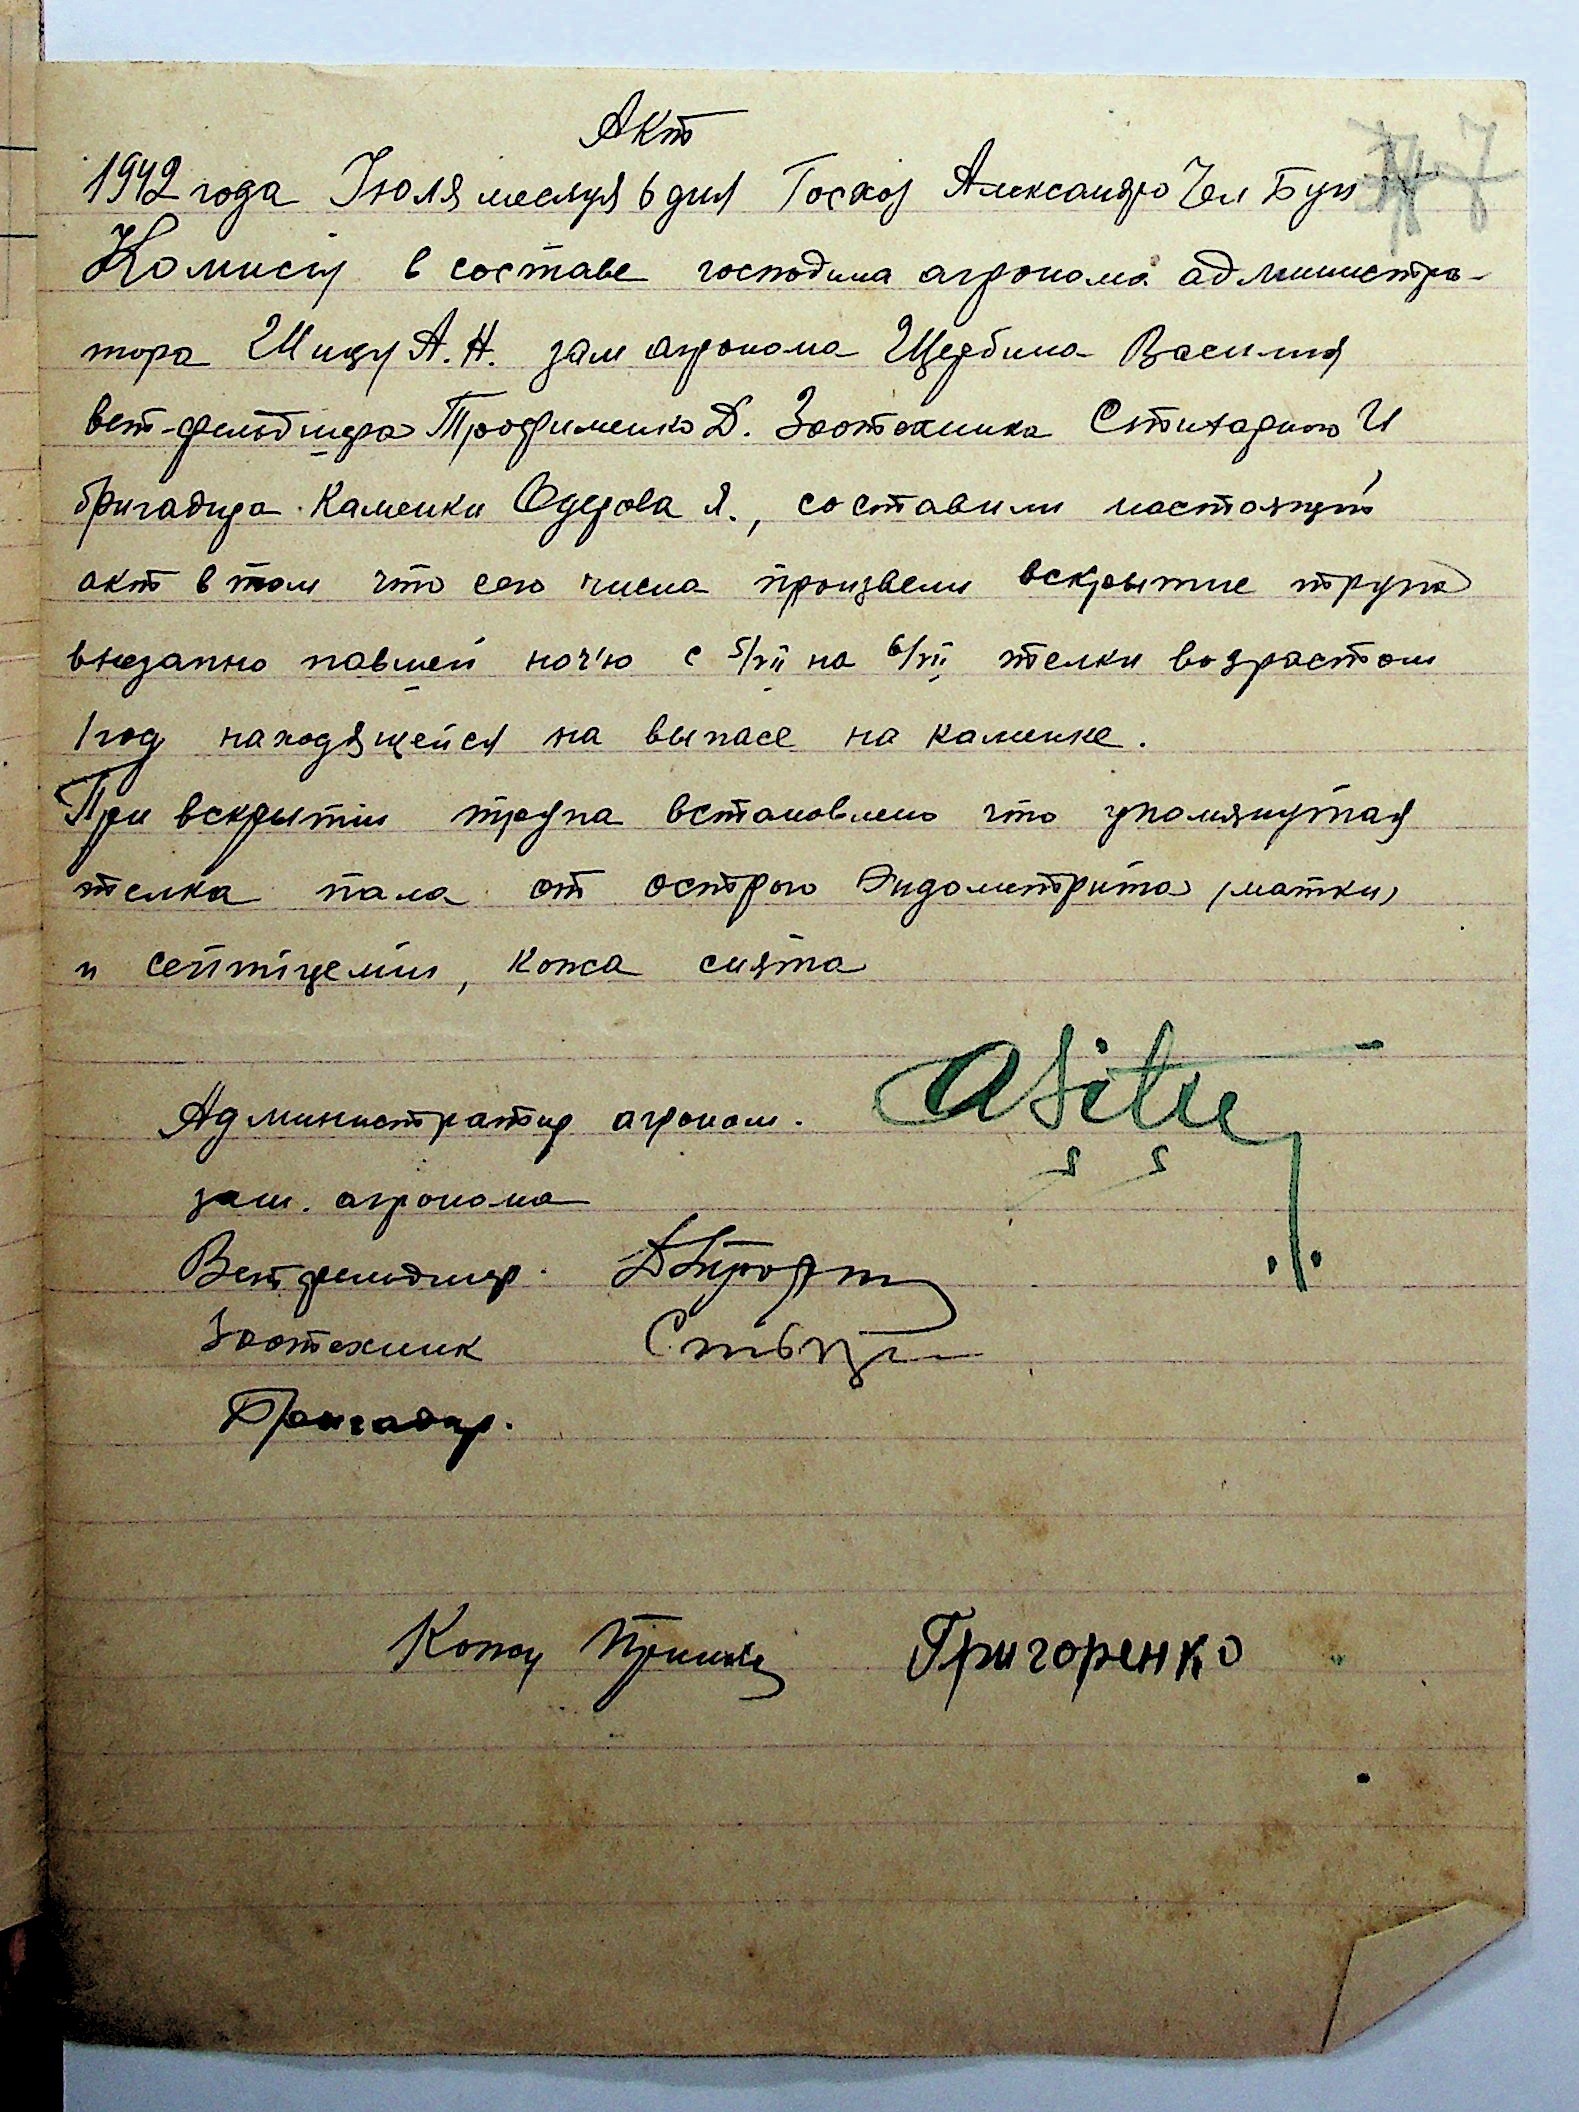 Акт
7
1942 года Іюля месяця 6 дня Госхоз Александро Чел Бун
Комисія в составе господина агронома администра-
тора Шицу А. Н. зам агронома Щербина Василия
вет-фельдшера Трофименко Д. Зоотехника И
бригадира Каменки Одерова Я., составили настоящий
акт в том что сего числа произвели вскрытие трупа
внезапно павшей ноч'ю с 5/VII на 6/VII телки возрастом
1 год находящейся на выпасе на каменке.
При вскрытіи трупа встановлено что упомянутая
телка пала от острого Эндометрита (матки)
и септіцеміи, кожа снята
Администратор агроном.
зам. агронома
Ветфельдшер.
Зоотехник
Бригадир.
Кожу Принял Григоренко